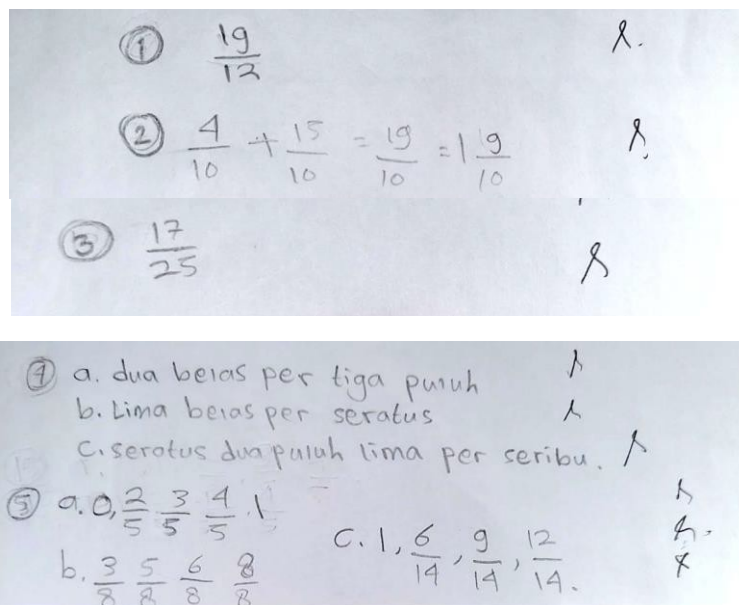 1 19/12
2 4/10 + 15/10 = 19/10 = 1 9/10
3 17/25
4 a. dua belas per tiga puluh
b. Lima belas per seratus
c. seratus dua puluh lima per seribu.
5 a. 0, 2/5 3/5 4/5 . 1
b. 3/8 5/8 6/8 8/8
c. 1, 6/14, 9/14, 12/14.